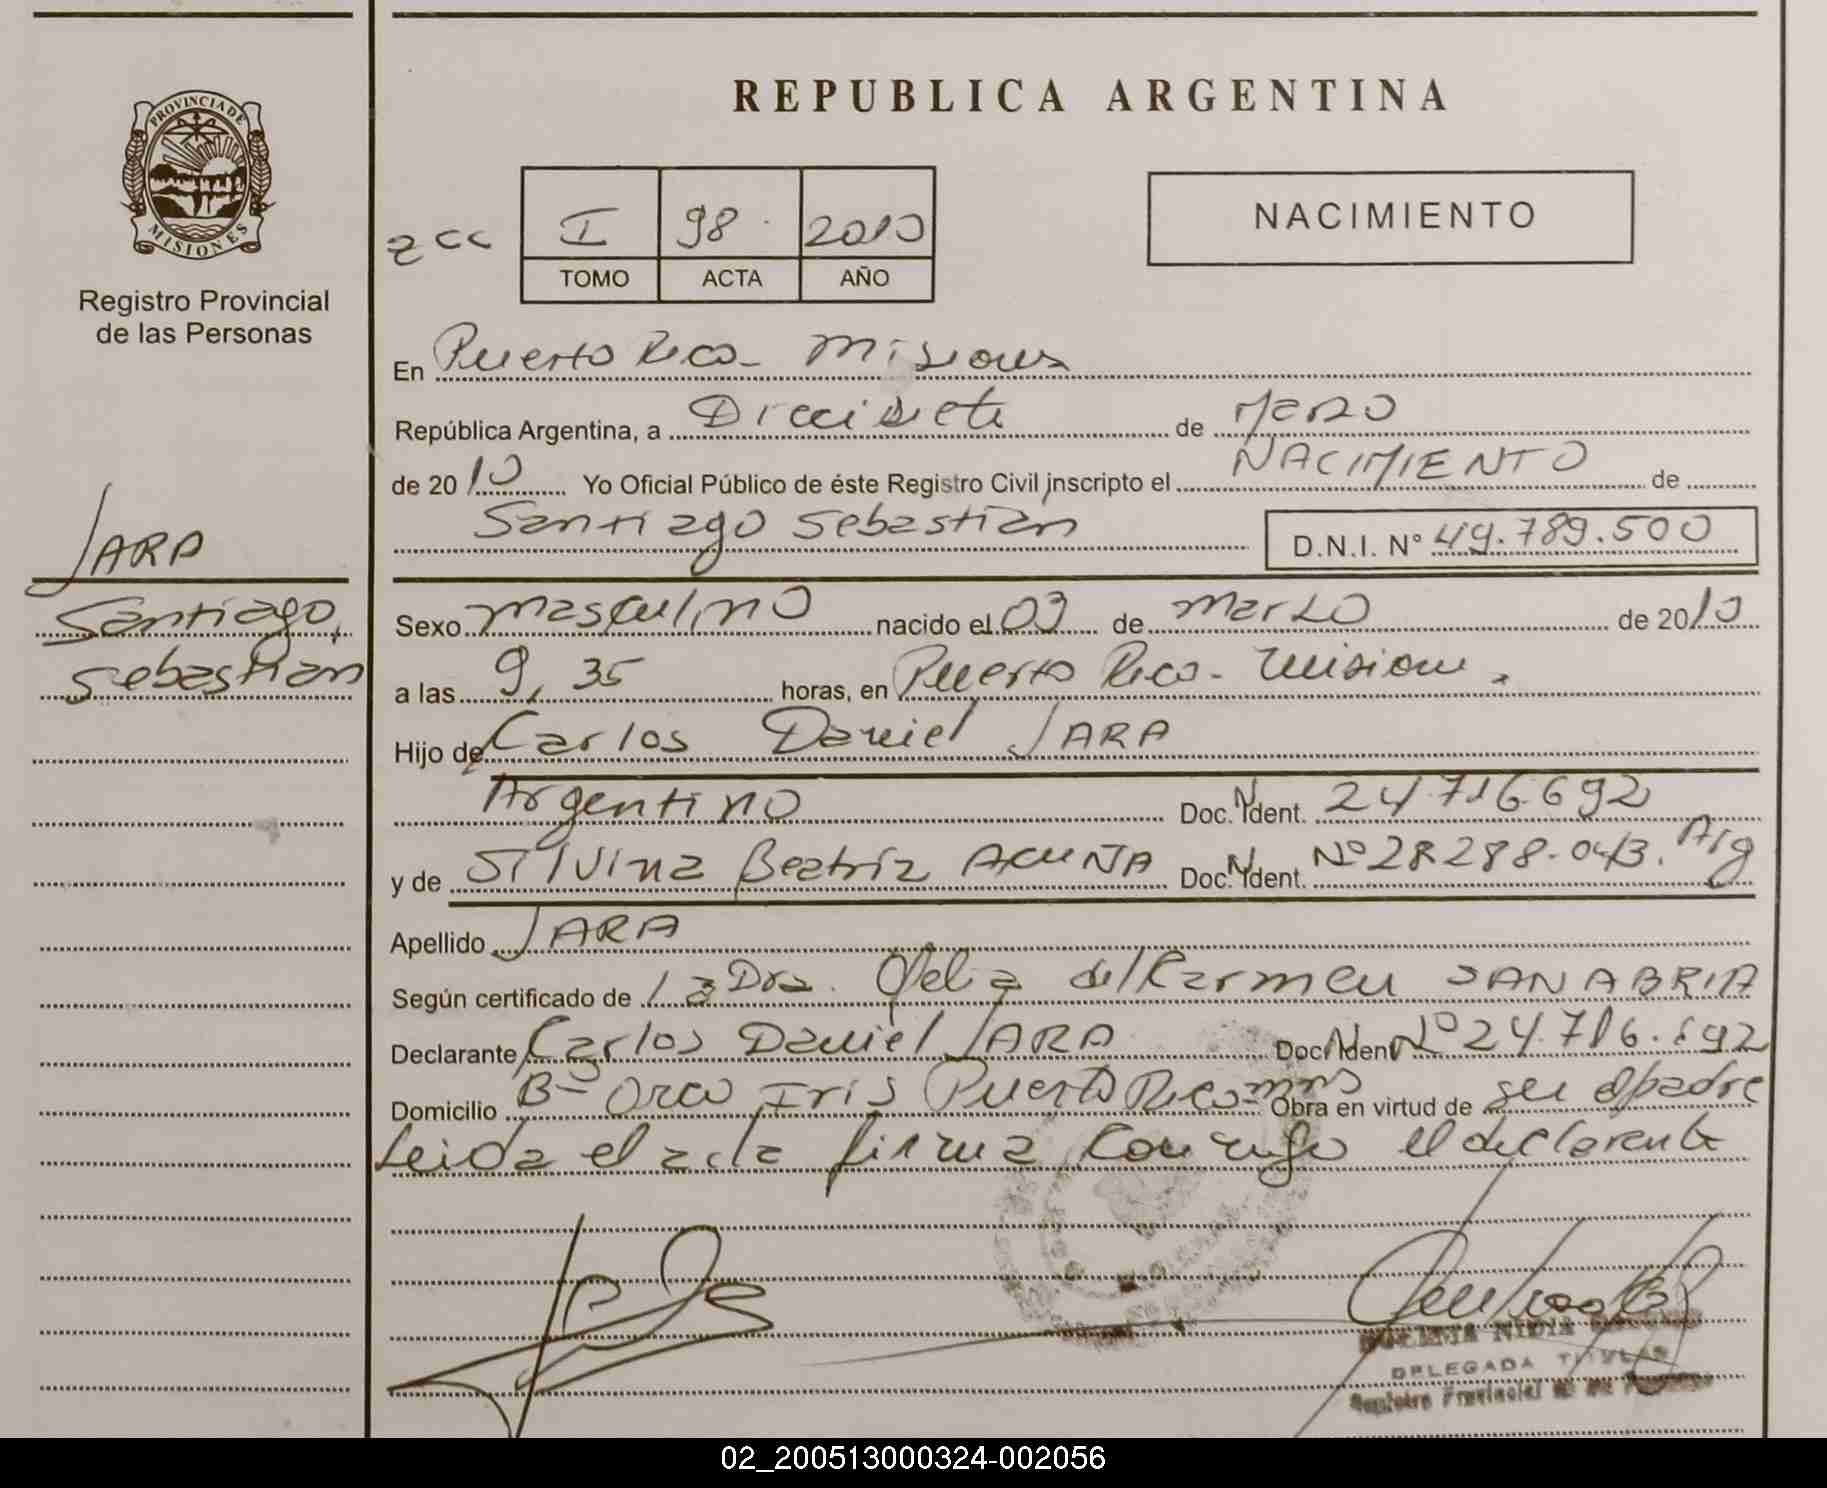 REPUBLICA ARGENTINA
PROVINCIA DE
MISIONES
Registro Provincial
de las Personas
I 98 2010
TOMO ACTA AÑO
NACIMIENTO
En Puerto Rico - Misiones
República Argentina, a Diecisiete de Marzo
de 2010 Yo Oficial Público de éste Registro Civil inscripto el NACIMIENTO de
Santiago Sebastián D.N.I. N° 49.789.500
JARA
Santiago,
Sebastian
Sexo masculino nacido el 03 de Marzo de 2010
a las 9,35 horas, en Puerto Rico - Misiones.
Hijo de Carlos Daniel JARA
Argentino Doc. Ident. 24.716.692
y de Silvina Beatriz ACUÑA Doc. Ident. Nº 28288.043. Arg
Apellido JARA
Según certificado de la Dra. del Carmen SANABRIA
Declarante Carlos Daniel JARA Doc. Ident. Nº 24.716.692
Domicilio Bº Iris Puerto Rico Mnes Obra en virtud de ser el padre
Leida el acta firma conmigo el declarante
NIDIA
DELEGADA TITULAR
Registro Provincial de las Personas
02_200513000324-002056